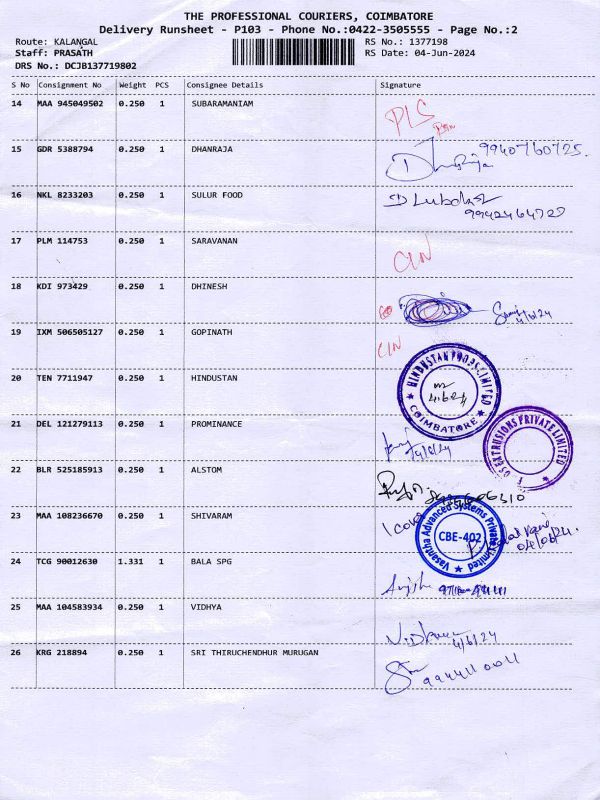 THE PROFESSIONAL COURIERS, COIMBATORE
Delivery Runsheet - P103 - Phone No.:0422-3505555 - Page No.:2
Route: KALANGAL RS No.: 1377198
Staff: PRASATH RS Date: 04-Jun-2024
DRS No.: DCJB137719802
S No Consignment No Weight PCS Consignee Details Signature
14 MAA 945049502 0.250 1 SUBARAMANIAM PLS
15 GDR 5388794 0.250 1 DHANRAJA 9940760725.
16 NKL 8233203 0.250 1 SULUR FOOD
9942464727
17 PLM 114753 0.250 1 SARAVANAN CIN
18 KDI 973429 0.250 1 DHINESH 4/6/24
19 IXM 506505127 0.250 1 GOPINATH CIN
20 TEN 7711947 0.250 1 HINDUSTAN HINDUSTAN FOODS LIMITED
4.6.24
COIMBATORE
21 DEL 121279113 0.250 1 PROMINANCE EXTRUSIONS PRIVATE LIMITED
22 BLR 525185913 0.250 1 ALSTOM
23 MAA 108236670 0.250 1 SHIVARAM Vasantha Advanced Systems Private Limited
CBE-402
04/06/24.
24 TCG 90012630 1.331 1 BALA SPG
25 MAA 104583934 0.250 1 VIDHYA
4/6/24
26 KRG 218894 0.250 1 SRI THIRUCHENDHUR MURUGAN